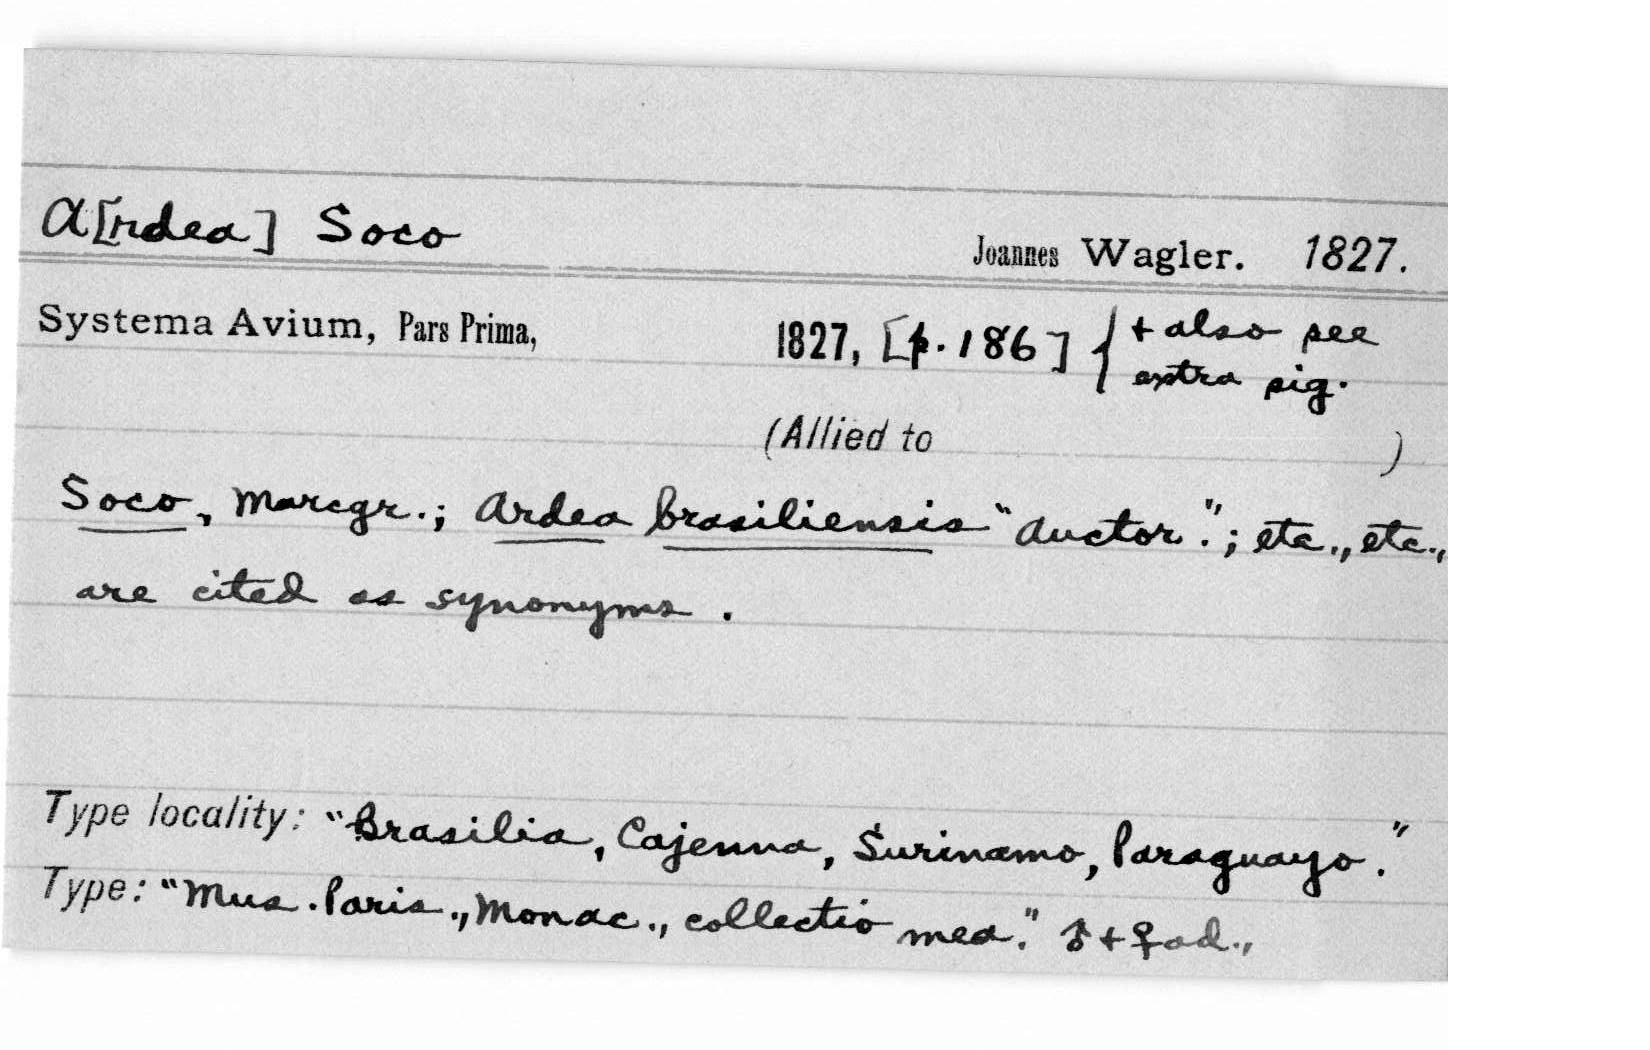 A[rdea] Soco Joannes Wagler. 1827.
Systema Avium, Pars Prima, 1827, [p. 186] { + also see
extra sig.
(Allied to )
Soco, Marcgr.; Ardea brasiliensis "Auctor."; etc., etc.,
are cited as synonyms.
Type locality: "Brasilia, Cajenna, Surinamo, Paraguayo."
Type: "Mus. Paris., Monac., collectio mea." ♂ + ♀ ad.,